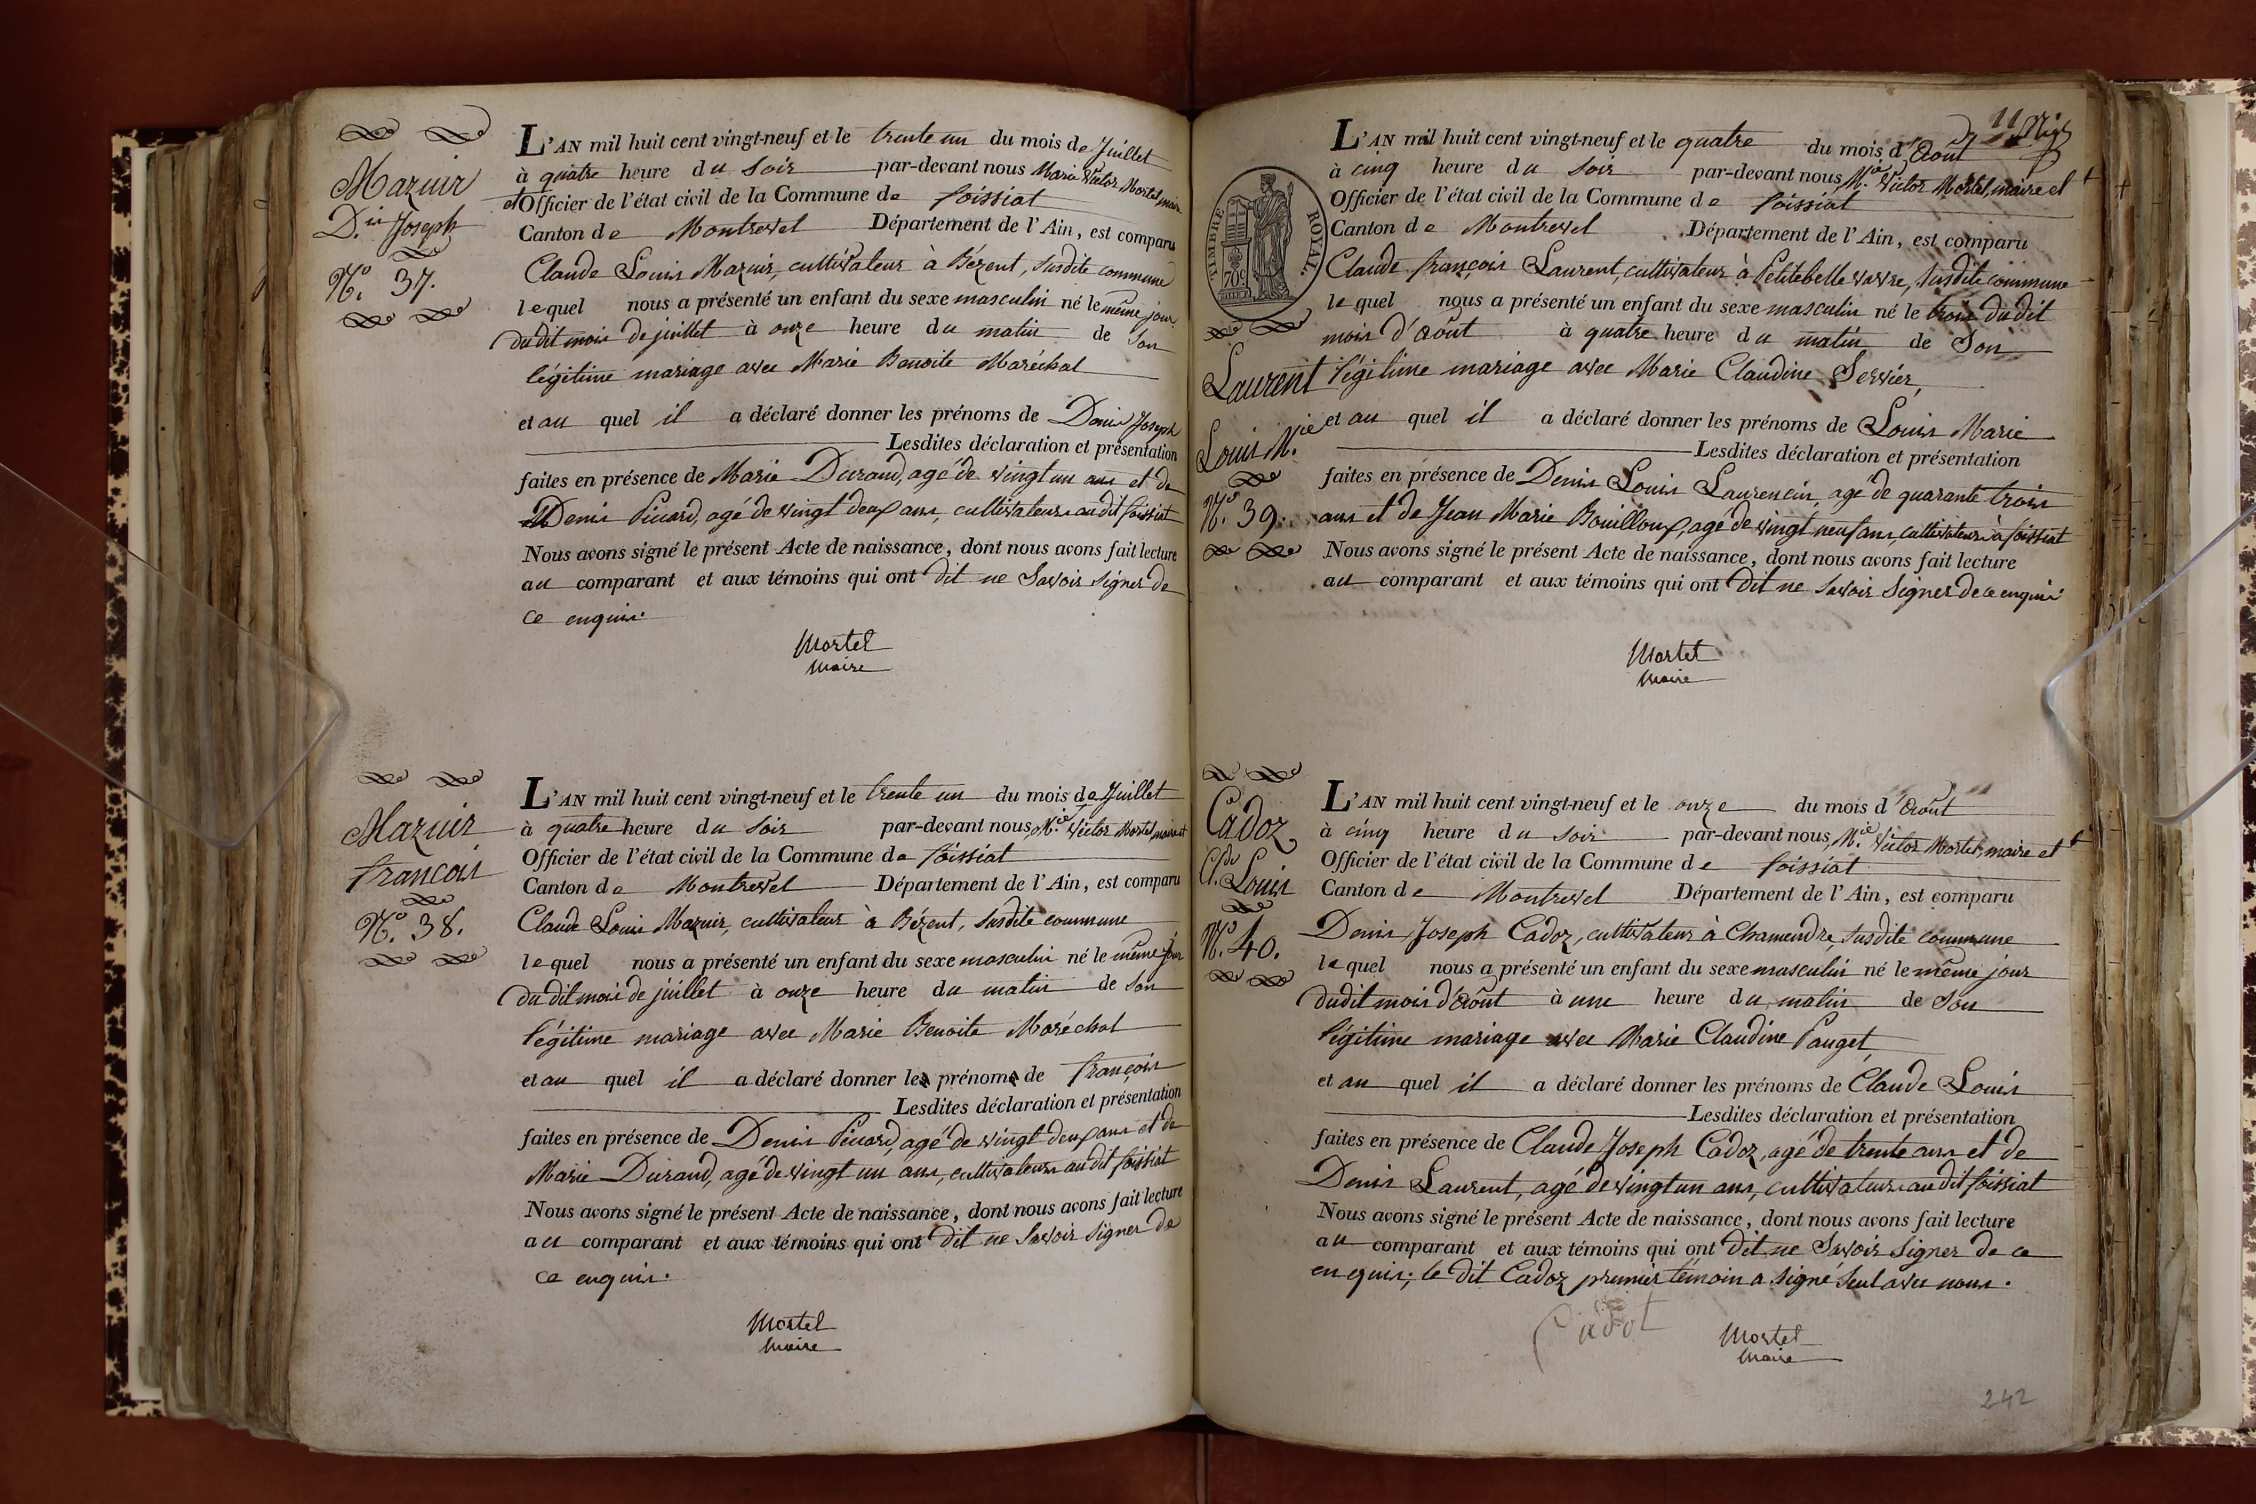 Mazuir
D.is Joseph
N.o 37.
L'AN mil huit cent vingt-neuf et le trente un du mois de Juillet
à quatre heure du soir par-devant nous Marie Victor Mortel, maire
et Officier de l'état civil de la Commune de foissiat
Canton de Montrevel Département de l'Ain, est comparu
Claude Louis Mazuir, cultivateur à Bézent, susdite commune
lequel nous a présenté un enfant du sexe masculin né le même jour
dudit mois de juillet à onze heure du matin de son
légitime mariage avec Marie Benoite Maréchal
et au quel il a déclaré donner les prénoms de Denis Joseph
Lesdites déclaration et présentation
faites en présence de Marie Durand, agé de vingt un ans et de
Denis Picard, agé de vingt deux ans, cultivateurs audit foissiat
Nous avons signé le présent Acte de naissance, dont nous avons fait lecture
au comparant et aux témoins qui ont dit ne savoir signer de
ce enquis.
Mortel
Maire
Mazuir
françois
N.o 38.
L'AN mil huit cent vingt-neuf et le trente un du mois de Juillet
à quatre heure du soir par-devant nous, M.ie Victor Mortel, maire et
Officier de l'état civil de la Commune de foissiat
Canton de Montrevel Département de l'Ain, est comparu
Claude Louis Mazuir, cultivateur à Bézent, susdite commune
lequel nous a présenté un enfant du sexe masculin né le même jour
dudit mois de juillet à onze heure du matin de son
légitime mariage avec Marie Benoite Maréchal
et au quel il a déclaré donner les prénoms de françois
Lesdites déclaration et présentation
faites en présence de Denis Picard, agé de vingt deux ans et de
Marie Durand, agé de vingt un ans, cultivateurs audit foissiat
Nous avons signé le présent Acte de naissance, dont nous avons fait lecture
au comparant et aux témoins qui ont dit ne savoir signer de
ce enquis.
Mortel
Maire
11
TIMBRE ROYAL.
70c
Laurent
Louis M.ie
N.o 39.
L'AN mil huit cent vingt-neuf et le quatre du mois d'août
à cinq heure du soir par-devant nous, M.ie Victor Mortel, maire et
Officier de l'état civil de la Commune de foissiat
Canton de Montrevel Département de l'Ain, est comparu
Claude françois Laurent, cultivateur à Petitebellevavre, susdite commune
lequel nous a présenté un enfant du sexe masculin né le trois dudit
mois d'août à quatre heure du matin de son
légitime mariage avec Marie Claudine Servier,
et au quel il a déclaré donner les prénoms de Louis Marie
Lesdites déclaration et présentation
faites en présence de Denis Louis Laurencin, agé de quarante trois
ans et de Jean Marie Bouilloux, agé de vingt neuf ans, cultivateurs à foissiat
Nous avons signé le présent Acte de naissance, dont nous avons fait lecture
au comparant et aux témoins qui ont dit ne savoir signer de ce enquis
Mortel
Maire
Cadoz
Cl.de Louis
N.o 40.
L'AN mil huit cent vingt-neuf et le onze du mois d'août
à cinq heure du soir par-devant nous, M.ie Victor Mortel, maire et
Officier de l'état civil de la Commune de foissiat
Canton de Montrevel Département de l'Ain, est comparu
Denis Joseph Cadoz, cultivateur à Chamendre, susdite commune
lequel nous a présenté un enfant du sexe masculin né le même jour
dudit mois d'août à une heure du matin de son
légitime mariage avec Marie Claudine Pauget
et au quel il a déclaré donner les prénoms de Claude Louis
Lesdites déclaration et présentation
faites en présence de Claude Joseph Cadoz, agé de trente ans et de
Denis Laurent, agé de vingt un ans, cultivateurs audit foissiat
Nous avons signé le présent Acte de naissance, dont nous avons fait lecture
au comparant et aux témoins qui ont dit ne savoir signer de ce
enquis; le dit Cadoz premier témoin a signé seul avec nous.
Cadot
Mortel
Maire
242